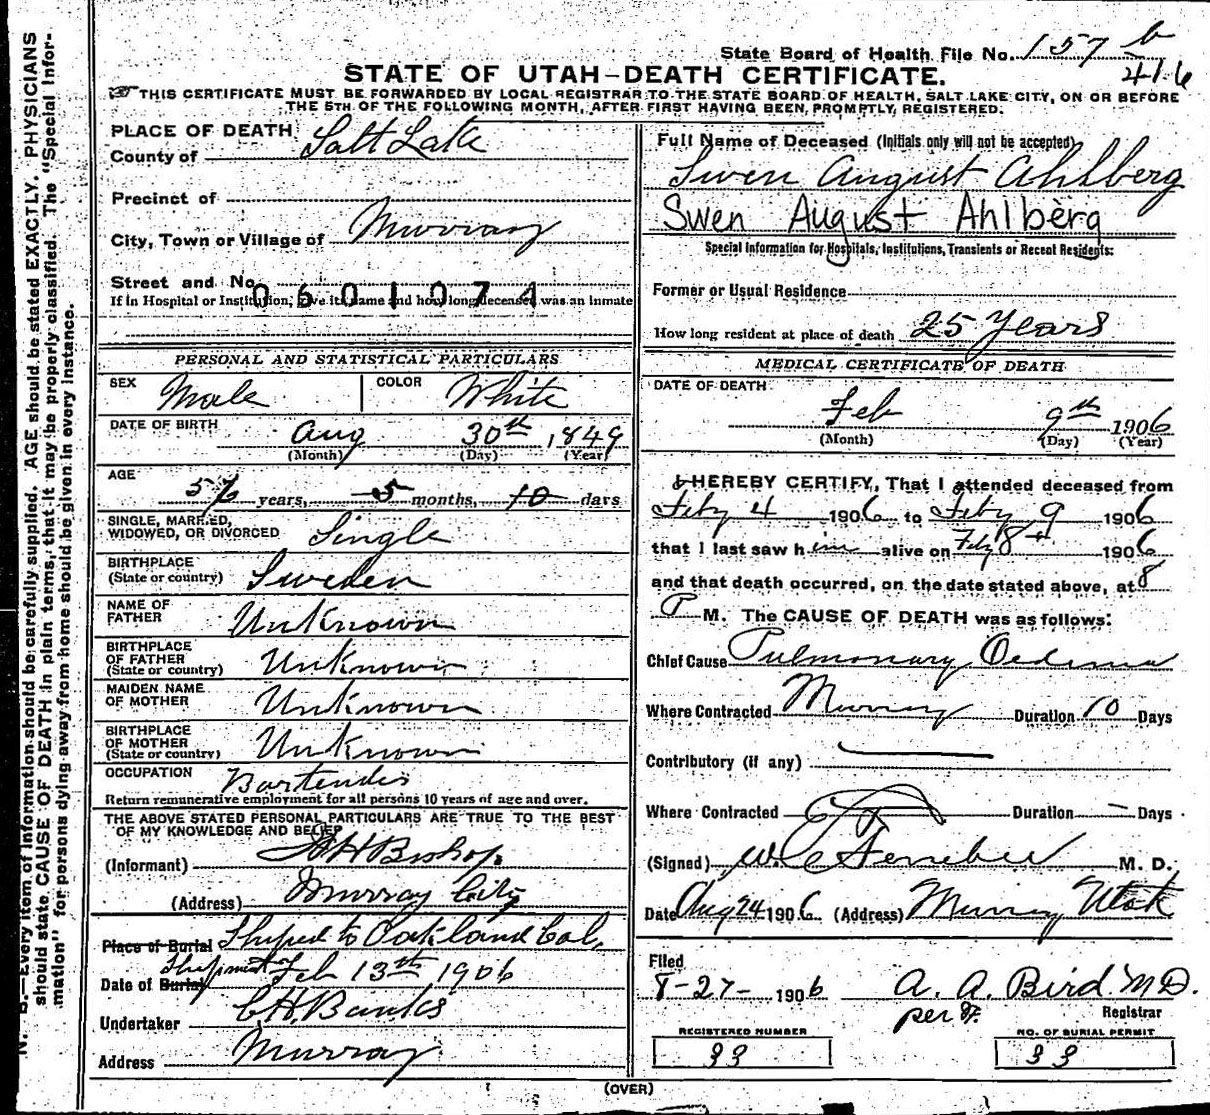 State Board of Health File No. 157 b
416
STATE OF UTAH—DEATH CERTIFICATE.
THIS CERTIFICATE MUST BE FORWARDED BY LOCAL REGISTRAR TO THE STATE BOARD OF HEALTH, SALT LAKE CITY, ON OR BEFORE
THE 5TH OF THE FOLLOWING MONTH, AFTER FIRST HAVING BEEN PROMPTLY REGISTERED.
N. B.—Every item of information should be carefully supplied. AGE should be stated EXACTLY. PHYSICIANS
should state CAUSE OF DEATH in plain terms, that it may be properly classified. The "Special Infor-
mation" for persons dying away from home should be given in every instance.
PLACE OF DEATH
County of Salt Lake
Precinct of
City, Town or Village of Murray
Street and No.
0601074
If in Hospital or Institution, give its name and how long deceased was an inmate
PERSONAL AND STATISTICAL PARTICULARS
SEX Male COLOR White
DATE OF BIRTH Aug 30th 1849
(Month) (Day) (Year)
AGE
56 years, 5 months, 10 days
SINGLE, MARRIED,
WIDOWED, OR DIVORCED Single
BIRTHPLACE
(State or country) Sweden
NAME OF
FATHER Unknown
BIRTHPLACE
OF FATHER
(State or country) Unknown
MAIDEN NAME
OF MOTHER Unknown
BIRTHPLACE
OF MOTHER
(State or country) Unknown
OCCUPATION Bartender
Return remunerative employment for all persons 10 years of age and over.
THE ABOVE STATED PERSONAL PARTICULARS ARE TRUE TO THE BEST
OF MY KNOWLEDGE AND BELIEF
(Informant) H H Bishop
(Address) Murray City
Place of Burial Shiped to Oakland Cal.
Shipment
Date of Burial Feb 13th 1906
Undertaker C.H. Banks
Address Murray
Full Name of Deceased (Initials only will not be accepted)
Swen August Ahlberg
Swen August Ahlberg
Special Information for Hospitals, Institutions, Transients or Recent Residents:
Former or Usual Residence
How long resident at place of death 25 Years
MEDICAL CERTIFICATE OF DEATH
DATE OF DEATH
Feb 9th 1906
(Month) (Day) (Year)
I HEREBY CERTIFY, That I attended deceased from
Feby 4 1906 to Feby 9 1906
that I last saw him alive on Feby 8th 1906
and that death occurred, on the date stated above, at 8
P M. The CAUSE OF DEATH was as follows:
Chief Cause Pulmonary Oedema
Where Contracted Murray Duration 10 Days
Contributory (if any) —
Where Contracted Duration — Days
(Signed) M. D.
Date Aug 24 1906 (Address) Murray Utah
Filed
8-27- 1906 A. A. Bird M D.
per
Registrar
REGISTERED NUMBER NO. OF BURIAL PERMIT
33 33
(OVER)